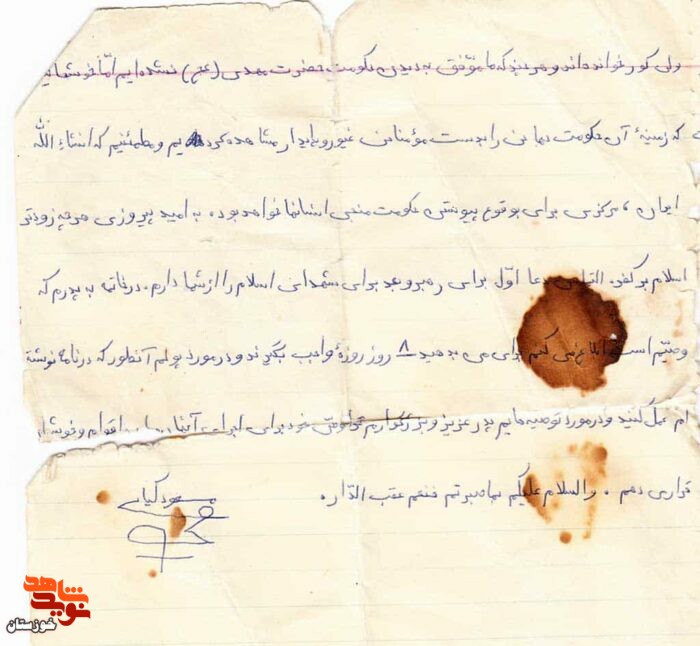 ولی کور خوانده‌اند و هر چند که ما موفق به دیدن حکومت حضرت مهدی (عج) نشده ایم اما خوشحالیم
که زمینهٔ آن حکومت جهانی را بدست مؤمنان غیور و پایدار مشاهده کرده‌ایم و مطمئنیم که انشاءالله
ایران، مرکزی برای بوقوع پیوستن حکومت منجی انسانها خواهد بود. به امید پیروزی هر چه زودتر
اسلام بر کفر. التماس دعا اوّل برای رهبر و بعد برای شهدای اسلام را از شما دارم. در خاتمه به پدرم که
وصیّم است ابلاغ می کنم برای من بدهید ۸ روز روزهٔ واجب بگیرند و در مورد پولم آنطور که در نامهٔ نوشته
ام عمل کنید و در مورد توصیه هایم پدر عزیز و بزرگوارم در برای اجرای اقوام و خویشان
قرار می دهم. والسلام علیکم بما صبرتم فنعم عقب الدّار.
مسعود کیانی
شاهد
نوید
خوزستان